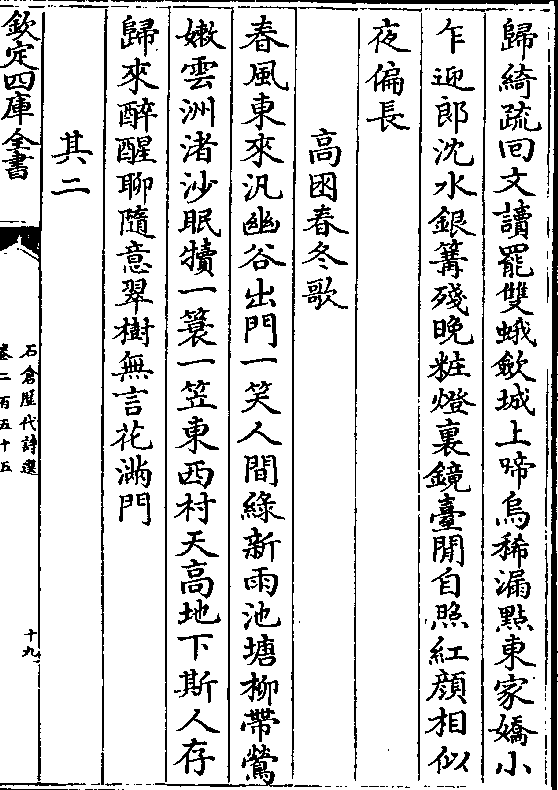 歸綺疏回文讀罷雙蛾斂城上啼烏稀漏點東家嬌小
乍迎郎沈水銀篝殘晚粧燈裏鏡臺閒自照紅顏相似
夜偏長
高囷春冬歌
春風東來汎幽谷出門一笑人間綠新雨池塘柳帶鶯
嫩雲洲渚沙眠犢一簑一笠東西村天高地下斯人存
歸來醉醒聊隨意翠樹無言花滿門
其二
欽定四庫全書
石倉歷代詩選
卷二百五十五
十九